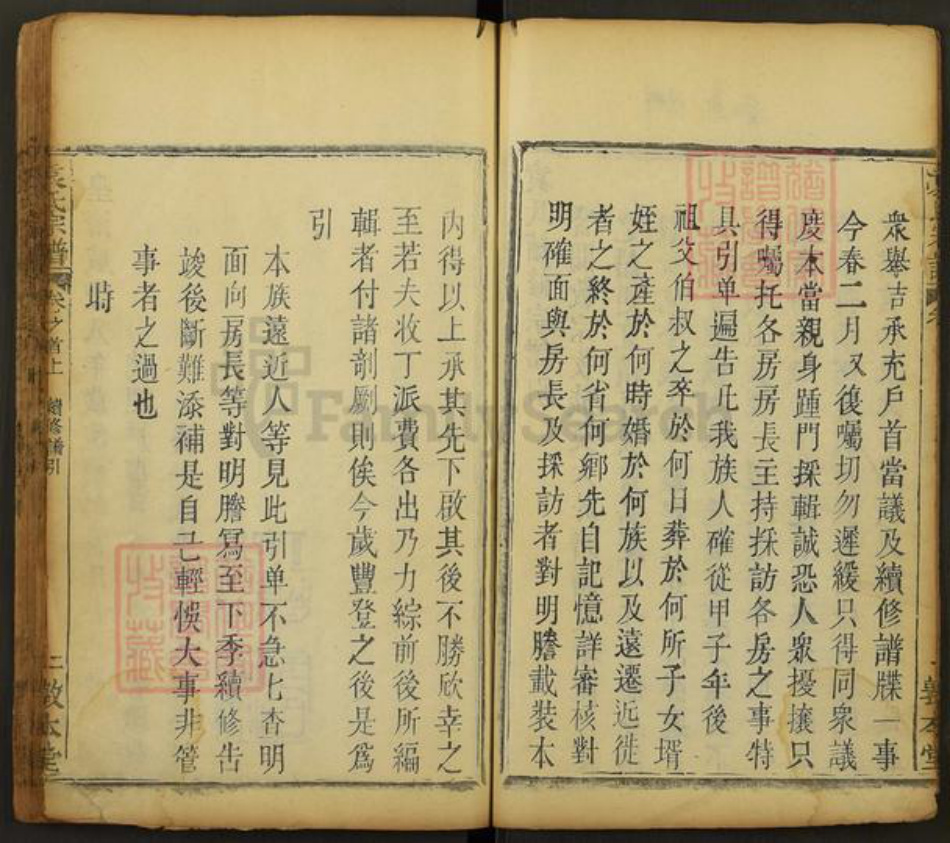 衆舉吉承充戶首當議及續修譜牒一事
今春二月又復囑切勿遲緩只得同衆議
度本當親身踵門採輯誠恐人衆擾攘只
得囑托各房房長主持採訪各房之事特
具引单遍告凡我族人確從甲子年後
祖父伯叔之卒於何日葬於何所子女壻
姪之產於何時婚於何族以及遠遷近徙
者之終於何省何鄉先自記憶詳審核對
明確面與房長及採訪者對明謄載裝本
內得以上承其先下啟其後不勝欣幸之
至若夫收丁派費各出乃力綜前後所編
輯者付諸剞劂則俟今歲豐登之後是爲
引
本族遠近人等見此引单不急匕查明
面向房長等對明謄寫至下季續修告
竣後斷難添補是自己輕悞大事非管
事者之過也
時
袁氏宗譜
卷之首上
續修譜引
二
敦本堂
FamilySearch